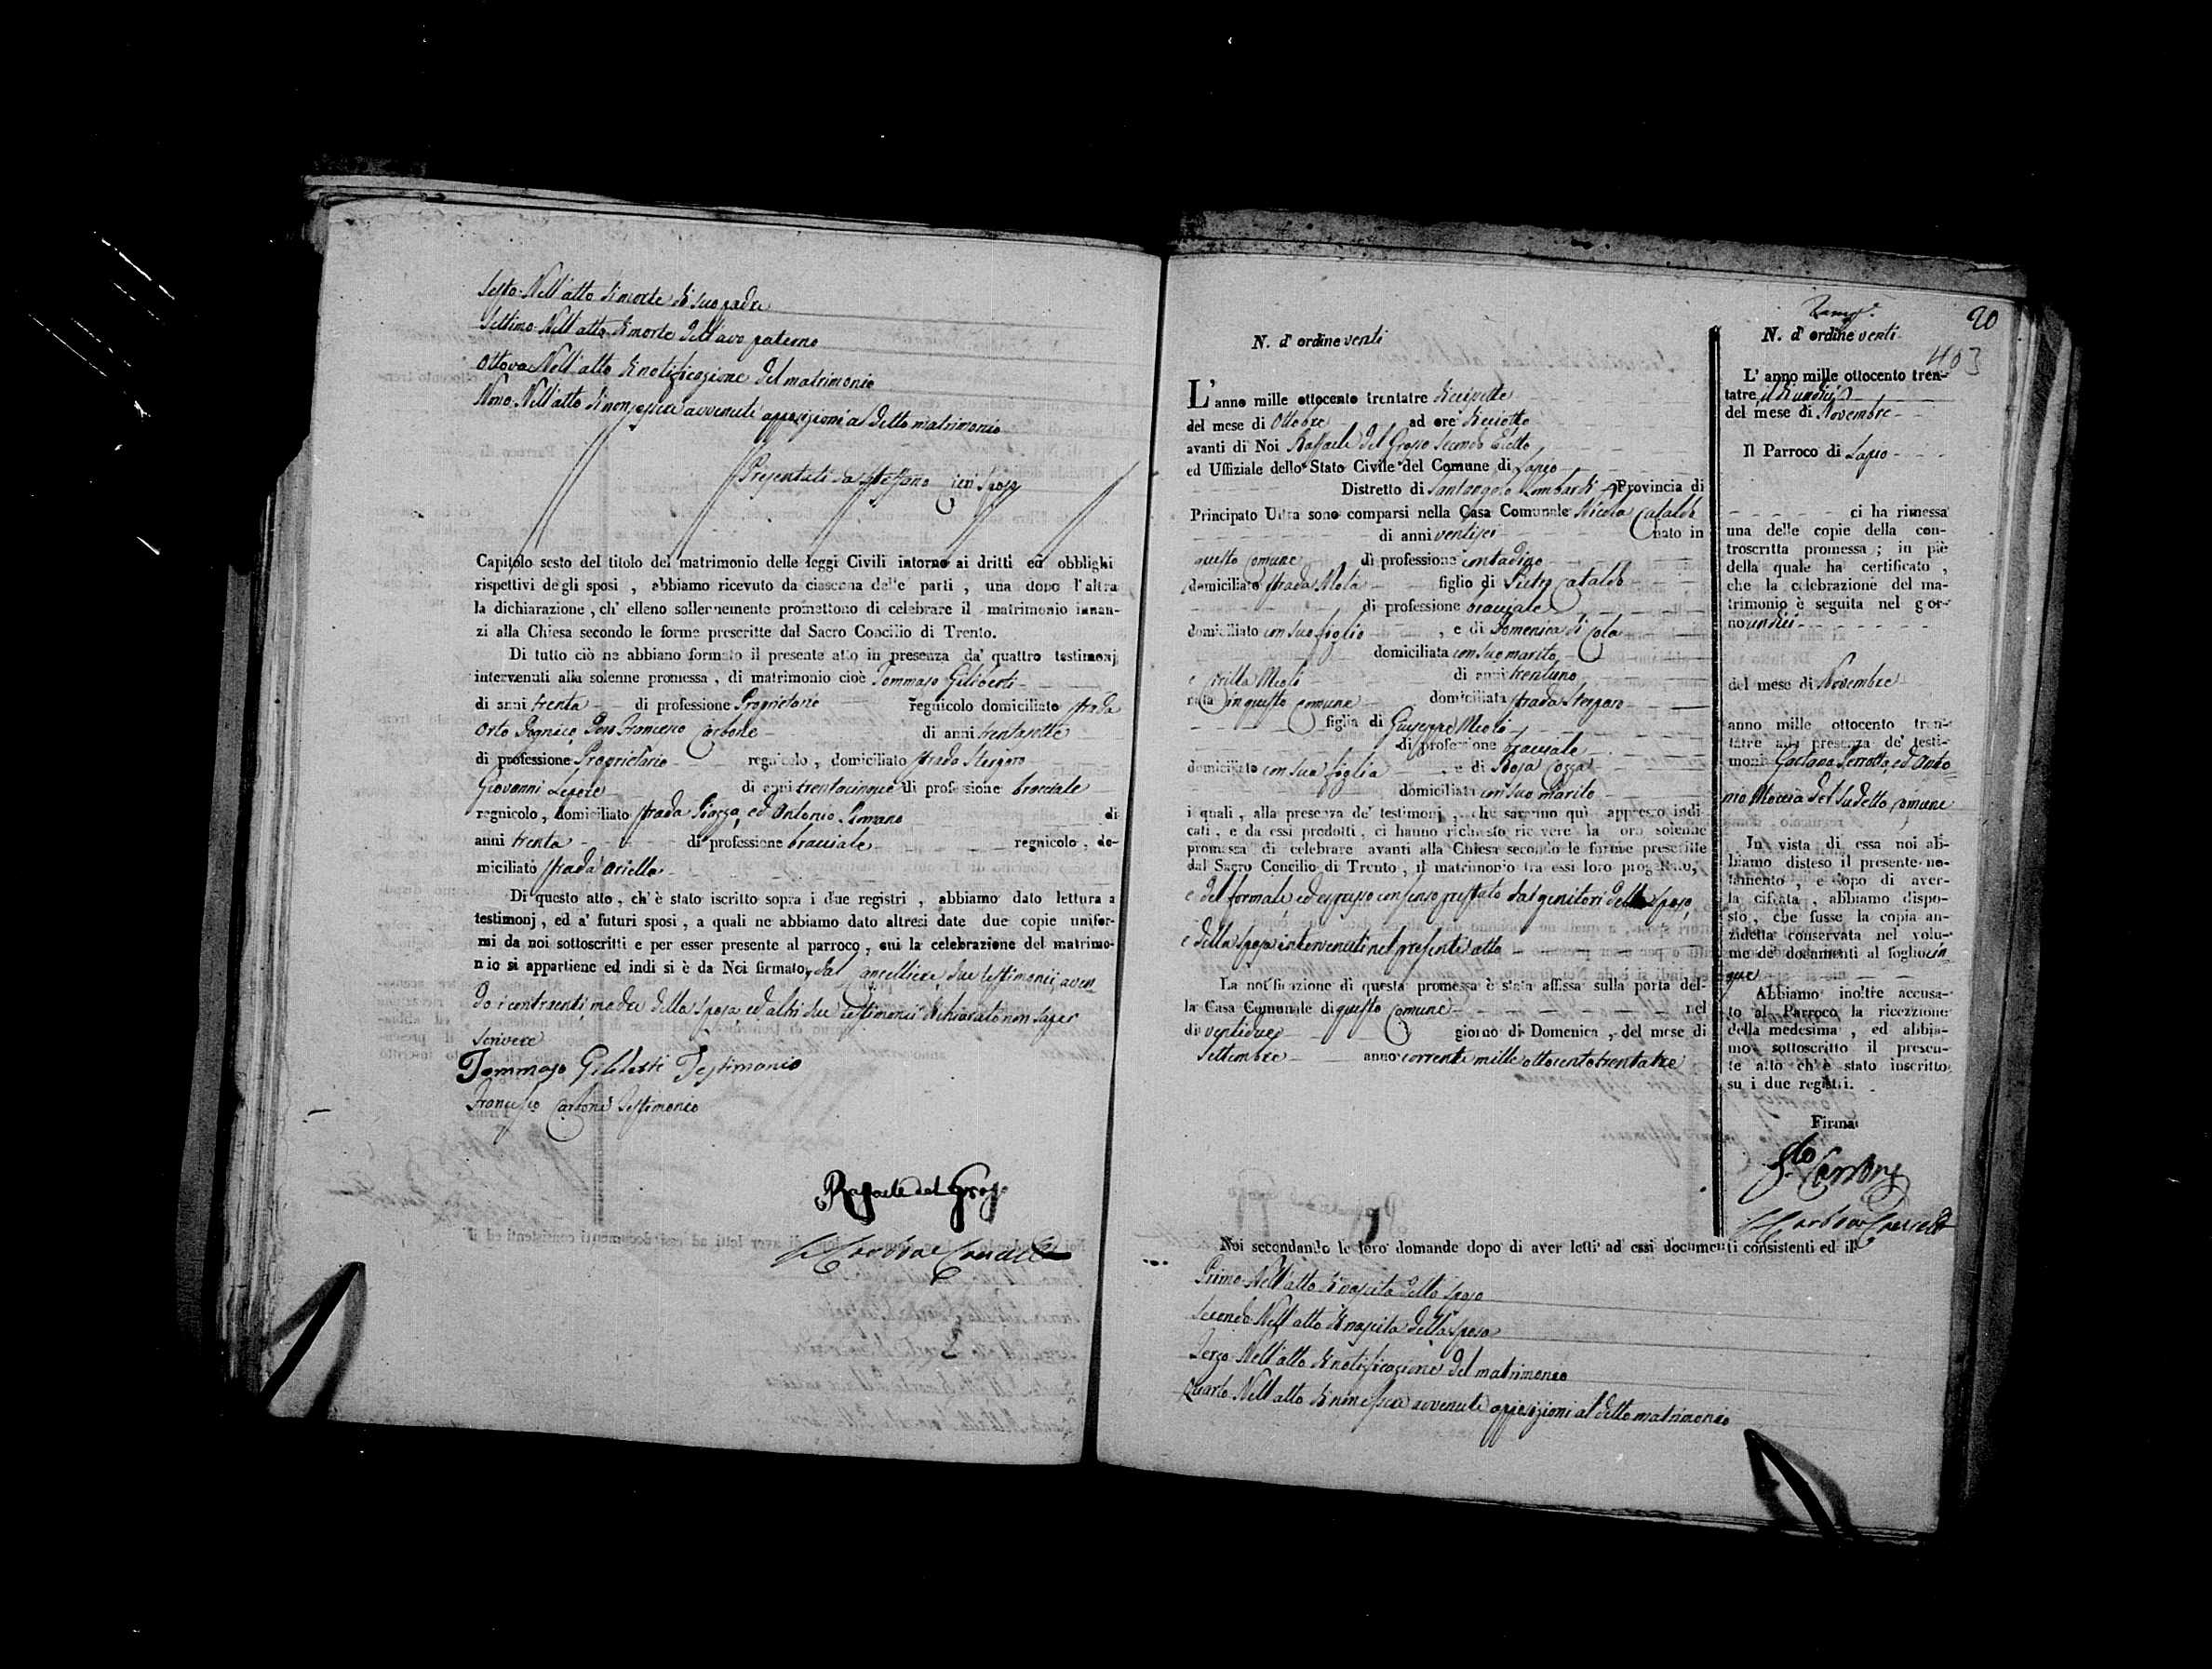 Sesto Nell'atto di morte di suo padre
Settimo Nell'atto di morte dell'avo paterno
Ottavo Nell'atto di notificazione del matrimonio
Nono Nell'atto di non essere avvenuti opposizioni al detto matrimonio
Presentati da sposi
Capitolo sesto del titolo del matrimonio delle leggi Civili intorno ai dritti ed obblighi
rispettivi degli sposi , abbiamo ricevuto da ciascuna delle parti , una dopo l'altra
la dichiarazione , ch' elleno sollennemente promettono di celebrare il matrimonio innan-
zi alla Chiesa secondo le forme prescritte dal Sacro Concilio di Trento.
Di tutto ciò ne abbiano formato il presente atto in presenza da' quattro testimonj
intervenuti alla solenne promessa , di matrimonio cioè Tommaso Giliberti
di anni trenta di professione Proprietario regnicolo domiciliato strada
Orto Don Francesco Carbone di anni trentasette
di professione Proprietario regnicolo , domiciliato strada Stergaro
Giovanni Lepore di anni trentacinque di professione bracciale
regnicolo , domiciliato strada Piazza, ed Antonio Romano di
anni trenta di professione bracciale regnicolo , do-
miciliato strada Ariella
Di questo atto , ch' è stato iscritto sopra i due registri , abbiamo dato lettura a
testimonj , ed a' futuri sposi , a quali ne abbiamo dato altresì date due copie unifor-
mi da noi sottoscritti e per esser presente al parroco , cui la celebrazione del matrimo-
nio si appartiene ed indi si è da Noi firmato, dal Cancelliere, due testimonii, aven
do i contraenti, madre della sposa, ed altri due testimonii dichiarato non saper
scrivere
Tommaso Giliberti Testimonio
Francesco Carbone Testimonio
Raffaele del Grosso
20
N. d' ordine venti
L' anno mille ottocento trentatre diecisette
del mese di Ottobre ad ore dieciotto
avanti di Noi Raffaele del Grosso Secondo Eletto
ed Uffiziale dello Stato Civile del Comune di Lapio
Distretto di Santangelo Lombardi Provincia di
Principato Ultra sono comparsi nella Casa Comunale Nicola Cataldo
di anni ventisei nato in
questo comune di professione contadino
domiciliato strada Mola figlio di Pietro Cataldo
di professione bracciale
domiciliato con suo figlio , e di Domenica di Cola
domiciliata con suo marito
e Mioli di anni trentuno
nata in questo comune domiciliata strada Stergaro
figlia di Giuseppe Mioli
di professione bracciale
domiciliato con sua figlia e di Rosa Cozza
domiciliata con suo marito
i quali , alla presenza de' testimonj , che saranno qui appresso indi-
cati , e da essi prodotti , ci hanno richiesto ricevere la loro solenne
promessa di celebrare avanti alla Chiesa secondo le forme prescritte
dal Sacro Concilio di Trento , il matrimonio tra essi loro progettato,
e del formale, ed espresso consenso prestato dai genitori dello sposo,
e della sposa intervenuti nel presente atto
La notificazione di questa promessa è stata affissa sulla porta del-
la Casa Comunale di questo Comune nel
dì ventidue giorno di Domenica , del mese di
Settembre anno corrente mille ottocento trentatre
N. d' ordine venti
403
L' anno mille ottocento tren-
tatre, il dì undici
del mese di Novembre
Il Parroco di Lapio
ci ha rimessa
una delle copie della con-
troscritta promessa ; in piè
della quale ha certificato ,
che la celebrazione del ma-
trimonio è seguita nel gior-
no undici
del mese di Novembre
anno mille ottocento tren-
tatre alla presenza de' testi-
monj Gaetano Serrotta, ed Anto
nio Moccia del sudetto Comune
In vista di essa noi ab-
biamo disteso il presente no-
tamento , e dopo di aver-
la cifrata , abbiamo dispo-
sto , che fusse la copia an-
zidetta conservata nel volu-
me de' documenti al foglio cin
que
Abbiamo inoltre accusa-
to al Parroco la ricezione
della medesima , ed abbia-
mo sottoscritto il presen-
te atto ch' è stato inscritto
su i due registri.
Firma
Carbone
Noi secondando le loro domande dopo di aver letti ad essi documenti consistenti ed il
Primo Nell'atto di nascita dello sposo
Secondo Nell'atto di nascita della sposa
Terzo Nell'atto di notificazione del matrimonio
Quarto Nell'atto di non essere avvenute opposizioni al detto matrimonio